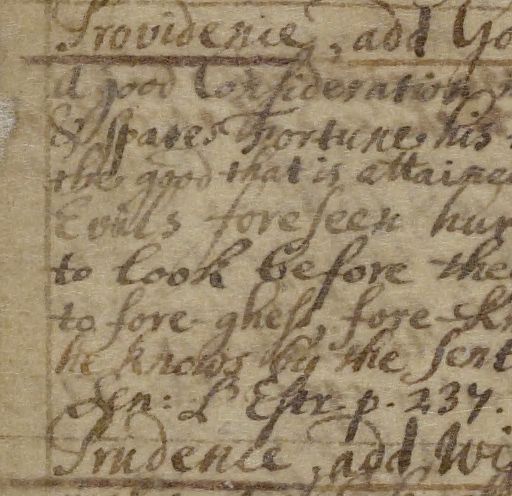 Providence, add Go
A good Consideration
& spares Fortune his
the good that is attaine
Evils foreseen hur
to look before the
to fore-ghess, fore-Kn
he knows by the sent
Sen: L'Estr. p. 237.
Prudence, add Wi